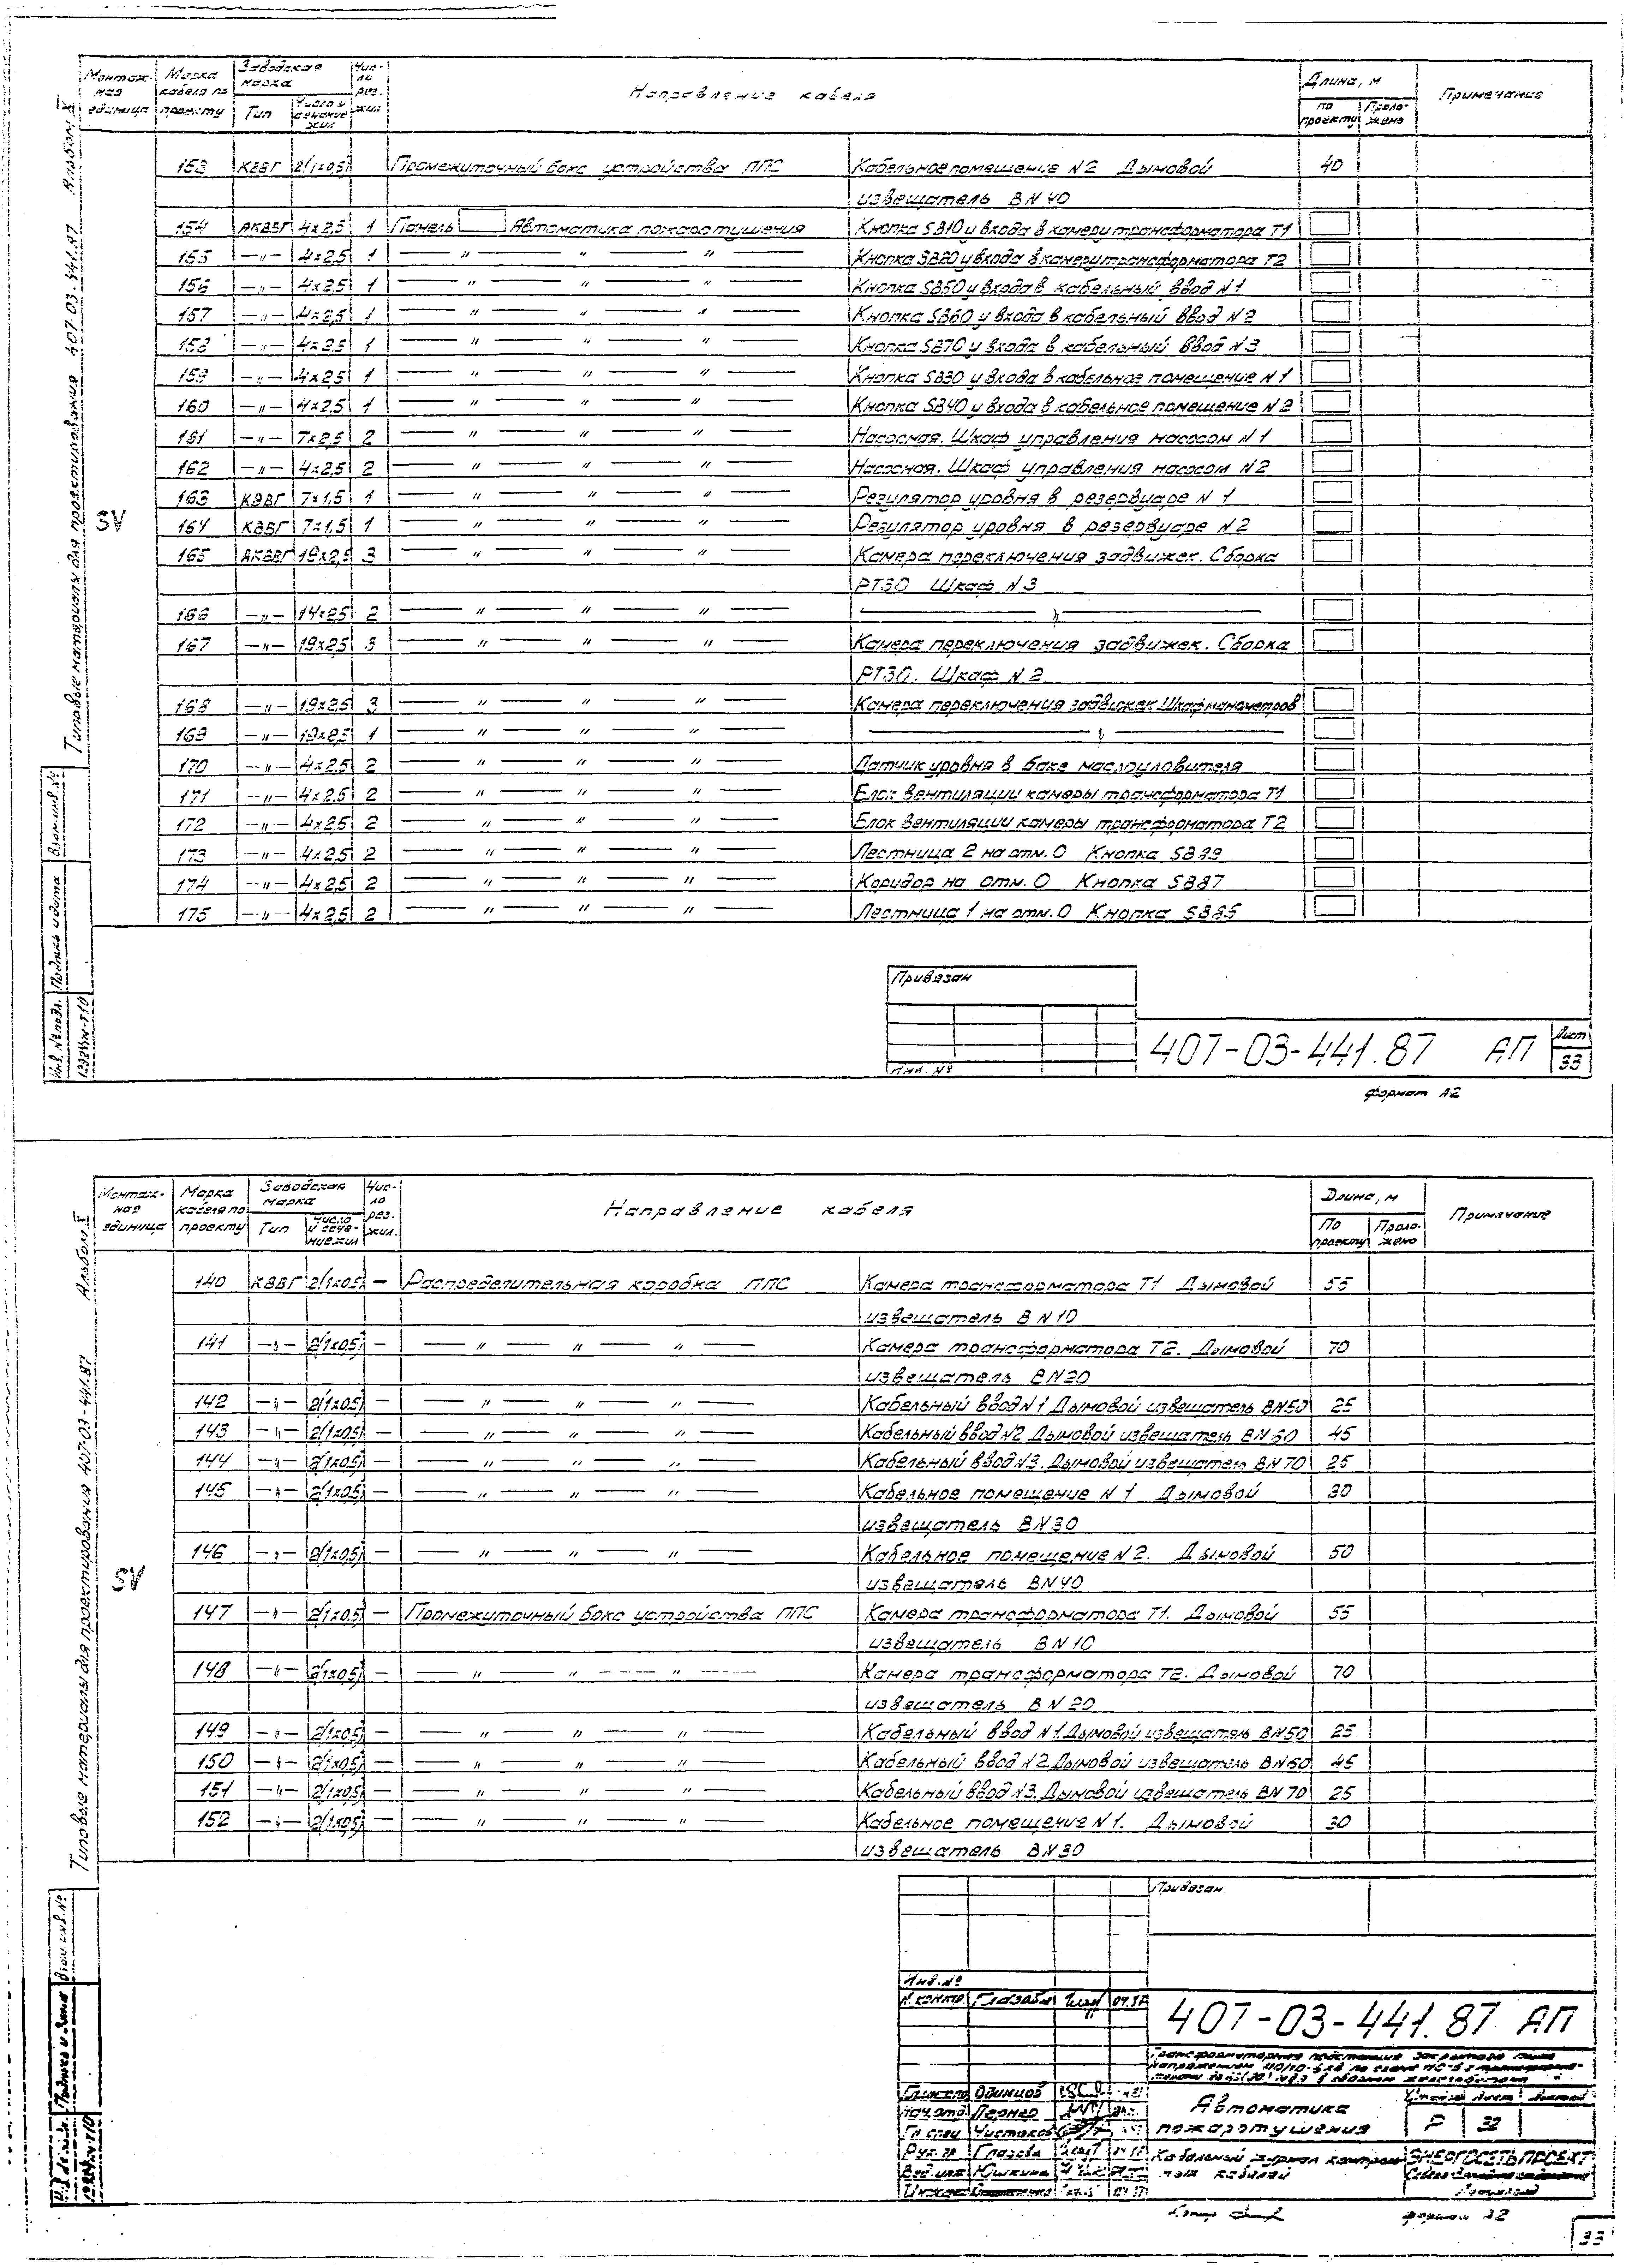 Типовые материалы для проектирования 407-03-441.87 Альбом X
Монтаж- ная единица | Марка кабеля по проекту | Заводская марка | Чис- ло рез. жил | Направление кабеля | Длина, м | Примечание
Тип | Число и сечение жил | по проекту | Проло- жено
SV
153 КВВГ 2(1×0,5) Промежуточный бокс устройства ППС Кабельное помещение N2 Дымовой 40
извещатель BN40
154 АКВВГ 4×2,5 1 Панель Автоматика пожаротушения Кнопка SB10 у входа в камеру трансформатора Т1
155 —〃— 4×2,5 1 — 〃 — 〃 — 〃 — Кнопка SB20 у входа в камеру трансформатора Т2
156 —〃— 4×2,5 1 — 〃 — 〃 — 〃 — Кнопка SB50 у входа в кабельный ввод N1
157 —〃— 4×2,5 1 — 〃 — 〃 — 〃 — Кнопка SB60 у входа в кабельный ввод N2
158 —〃— 4×2,5 1 — 〃 — 〃 — 〃 — Кнопка SB70 у входа в кабельный ввод N3
159 —〃— 4×2,5 1 — 〃 — 〃 — 〃 — Кнопка SB30 у входа в кабельное помещение N1
160 —〃— 4×2,5 1 — 〃 — 〃 — 〃 — Кнопка SB40 у входа в кабельное помещение N2
161 —〃— 7×2,5 2 — 〃 — 〃 — 〃 — Насосная. Шкаф управления насосом N1
162 —〃— 4×2,5 2 — 〃 — 〃 — 〃 — Насосная. Шкаф управления насосом N2
163 КВВГ 7×1,5 1 — 〃 — 〃 — 〃 — Регулятор уровня в резервуаре N 1
164 КВВГ 7×1,5 1 — 〃 — 〃 — 〃 — Регулятор уровня в резервуаре N2
165 АКВВГ 19×2,5 3 — 〃 — 〃 — 〃 — Камера переключения задвижек. Сборка
РТЗО Шкаф N3
166 —〃— 14×2,5 2 — 〃 — 〃 — 〃 — — 〃 —
167 —〃— 19×2,5 3 — 〃 — 〃 — 〃 — Камера переключения задвижек. Сборка
РТЗО. Шкаф N2
168 —〃— 19×2,5 3 — 〃 — 〃 — 〃 — Камера переключения задвижек Шкаф манометров
169 —〃— 19×2,5 1 — 〃 — 〃 — 〃 — — 〃 —
170 —〃— 4×2,5 2 — 〃 — 〃 — 〃 — Датчик уровня в баке маслоуловителя
171 —〃— 4×2,5 2 — 〃 — 〃 — 〃 — Блок вентиляции камеры трансформатора Т1
172 —〃— 4×2,5 2 — 〃 — 〃 — 〃 — Блок вентиляции камеры трансформатора Т2
173 —〃— 4×2,5 2 — 〃 — 〃 — 〃 — Лестница 2 на отм. 0 Кнопка SB89
174 —〃— 4×2,5 2 — 〃 — 〃 — 〃 — Коридор на отм. 0 Кнопка SB87
175 —〃— 4×2,5 2 — 〃 — 〃 — 〃 — Лестница 1 на отм. 0 Кнопка SB85
Инв. № подл. Подпись и дата Взам.инв.№
13324тм-т10
Привязан
Инв. №
407-03-441.87 АП
Лист
33
формат А2
Типовые материалы для проектирования 407-03-441.87 Альбом X
Монтаж- ная единица | Марка кабеля по проекту | Заводская марка | Чис- ло рез. жил. | Направление кабеля | Длина, м | Примечание
Тип | Число и сече- ние жил | По проекту | Проло- жено
SV
140 КВВГ 2(1×0,5) — Распределительная коробка ППС Камера трансформатора Т1 Дымовой 55
извещатель BN10
141 —〃— 2(1×0,5) — — 〃 — 〃 — 〃 — Камера трансформатора Т2. Дымовой 70
извещатель BN20
142 —〃— 2(1×0,5) — — 〃 — 〃 — 〃 — Кабельный ввод N1 Дымовой извещатель BN50 25
143 —〃— 2(1×0,5) — — 〃 — 〃 — 〃 — Кабельный ввод N2 Дымовой извещатель BN60 45
144 —〃— 2(1×0,5) — — 〃 — 〃 — 〃 — Кабельный ввод N3. Дымовой извещатель BN70 25
145 —〃— 2(1×0,5) — — 〃 — 〃 — 〃 — Кабельное помещение N 1 Дымовой 30
извещатель BN30
146 —〃— 2(1×0,5) — — 〃 — 〃 — 〃 — Кабельное помещение N2. Дымовой 50
извещатель BN40
147 —〃— 2(1×0,5) — Промежуточный бокс устройства ППС Камера трансформатора Т1. Дымовой 55
извещатель BN10
148 —〃— 2(1×0,5) — — 〃 — 〃 — 〃 — Камера трансформатора Т2. Дымовой 70
извещатель BN 20
149 —〃— 2(1×0,5) — — 〃 — 〃 — 〃 — Кабельный ввод N1. Дымовой извещатель BN50 25
150 —〃— 2(1×0,5) — — 〃 — 〃 — 〃 — Кабельный ввод N2 Дымовой извещатель BN60 45
151 —〃— 2(1×0,5) — — 〃 — 〃 — 〃 — Кабельный ввод N3. Дымовой извещатель BN70 25
152 —〃— 2(1×0,5) — — 〃 — 〃 — 〃 — Кабельное помещение N1. Дымовой 30
извещатель BN30
Подпись и дата Взам инв.№
Привязан
Инв.№
Н. контр. Глазова
407-03-441.87 АП
Трансформаторная подстанция закрытого типа
напряжением 110/10-6 кВ по схеме
Одинцов
Нач.отд. Лернер
Гл.спец Чистяков
Рук. гр Глазова
Вед.инж Юшкина
Автоматика
пожаротушения
Стадия Лист Листов
Р 32
Кабельный журнал контроль-
ных кабелей
ЭНЕРГОСЕТЬПРОЕКТ
формат А2
33